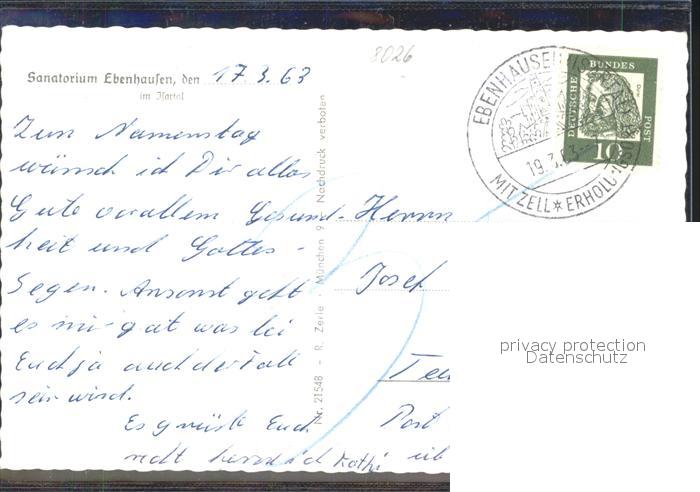 8026
Sanatorium Ebenhausen, den 17.3.63
im Isartal
Zum Namenstag
wünsch ich Dir alles
Gute vorallem Gesund-
heit und Gottes-
Segen. Ansonst geht
es mir gut was bei
Euch ja auch der Fall
sein wird.
Es grüsst Euch
recht herzlich Kathi
Nr. 21548 - R. Zerle · München 9 · Nachdruck verboten
Herrn
Josef
Post
EBENHAUSEN
MIT ZELL ✶ ERHOLU
19.3.63
DEUTSCHE BUNDES POST
10
privacy protection
Datenschutz